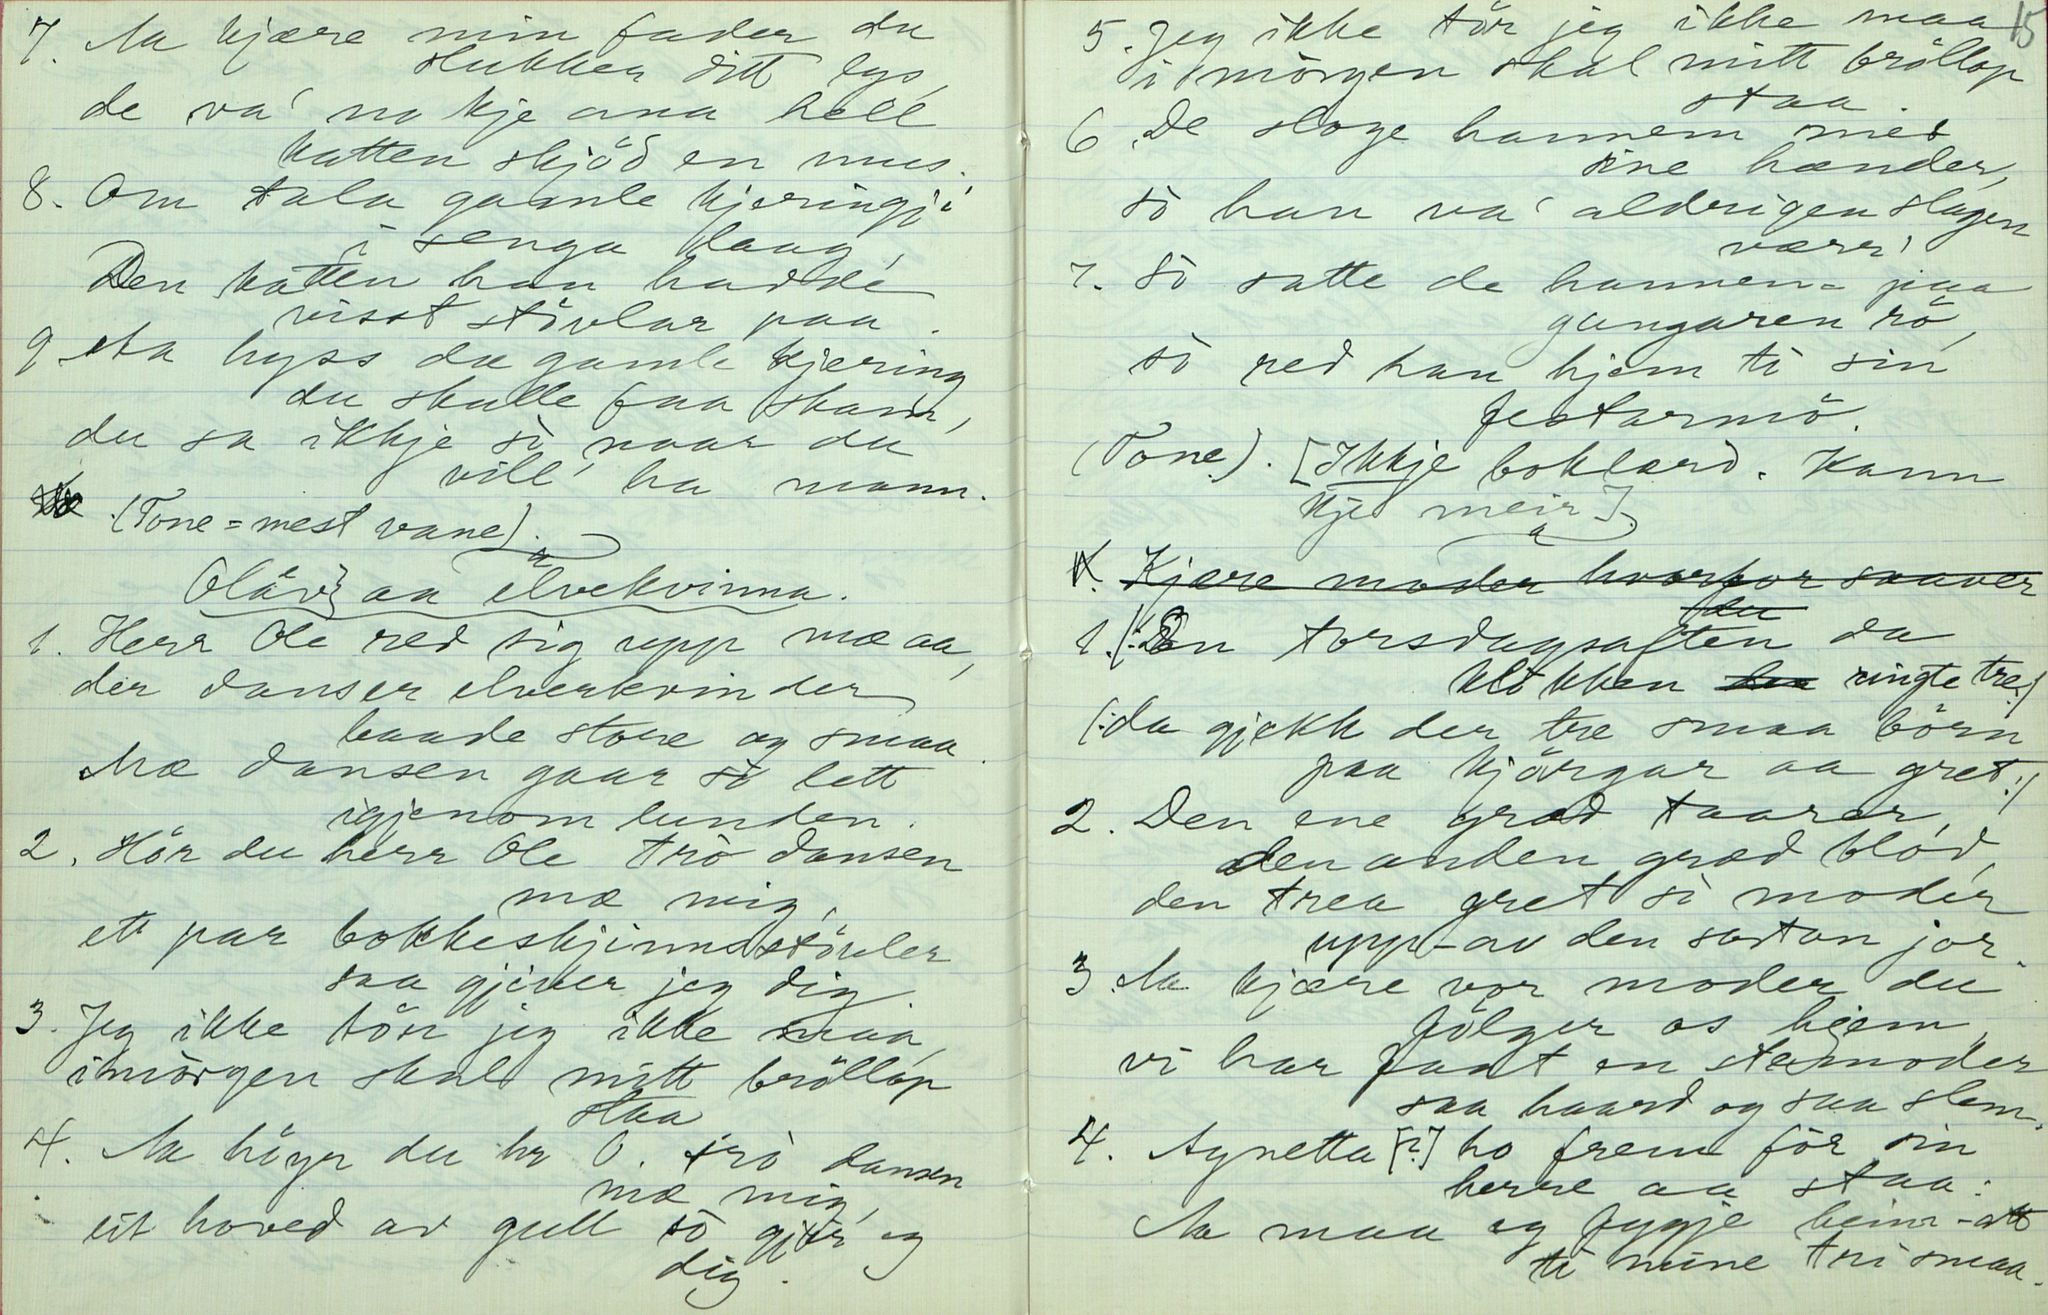 7. Aa kjære min fader du
slukker ditt lys,
de va' no kje ana hell
katten skjöd en mus.
8. Om tala gamle kjeringji
i senga laag,
Den katten han hadde
visst stövlar paa.
9 Aa hyss du gamle kjering
du skulle faa skam,
du sa ikkje sò naar du
vill' ha mann.
(Tone = mest vane).
Olav aa elvekvinna.
1. Herr Ole red sig upp mæ aa,
der danser elverkvinder
baade store og smaa.
Mæ dansen gaar sò lett
igjenom lunden.
2. Hör du herr Ole trò dansen
mæ mig,
et par bokkeskjinnsstövler
saa gjever jeg dig.
3. Jeg ikke tör jeg ikke maa,
imòrgen skal mitt bröllop
staa
4. Aa höyr du hr O. trò dansen
mæ mig,
eit hoved av gull sò gjev eg
dig.
15
5. Jeg ikke tör jeg ikke maa
i mòrgen skal mitt bröllop
staa.
6. De sloge hannem med
sine hænder,
sò han va' aldrigen slagen
værr'
7. Sò satte de hannem paa
gangaren rö,
sò red han hjem ti sin
festarmö.
(Tone). [Ikkje boklærd. Kann
kje meir].
1. Kjære moder hvorfor saaver
du
1. /: Den torsdagsaften da
klokken ringte tre :/
/: da gjekk der tre smaa börn
paa kjörgar aa gret :/
2. Den ene græd taarer,
den anden græd blód,
den trea gret si moder
upp-av den sortan jor.
3. Aa kjære vor moder du
fölger os hjem,
vi har faat en stemoder
saa haard og saa slem.
4. Agnetta [?] ho frem för sin
herre aa staa:
Aa maa eg fygje heim-att
ti mine tri smaa.